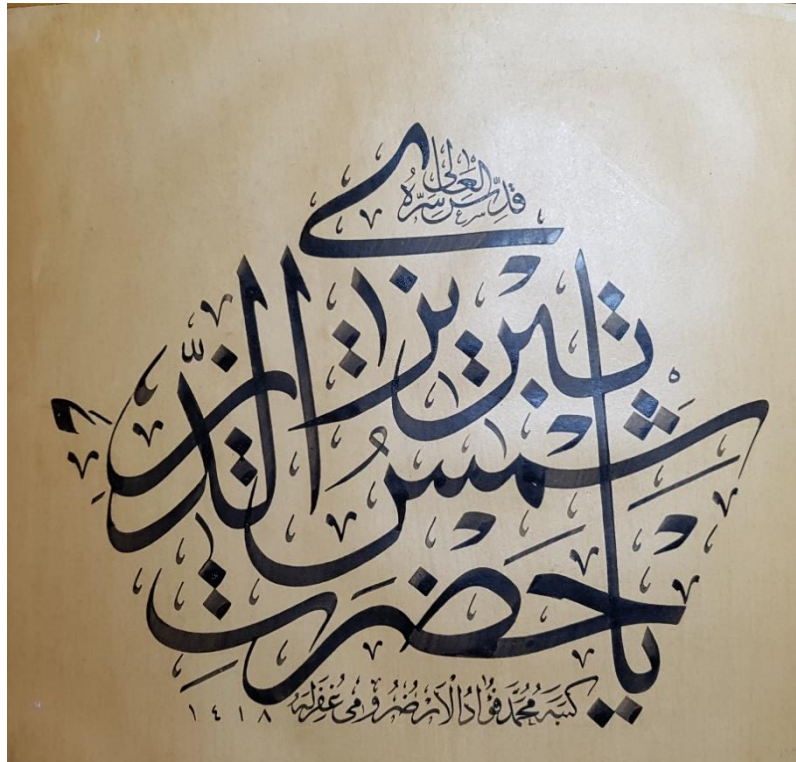 يا حَضْرَتِ
شمسُ الدِّين
تبريزى
قدّس سِرّهُ العالى
كتبه مُحمّد فؤادُ الأرضُرومى غُفِرَلَهُ
١٤١٨